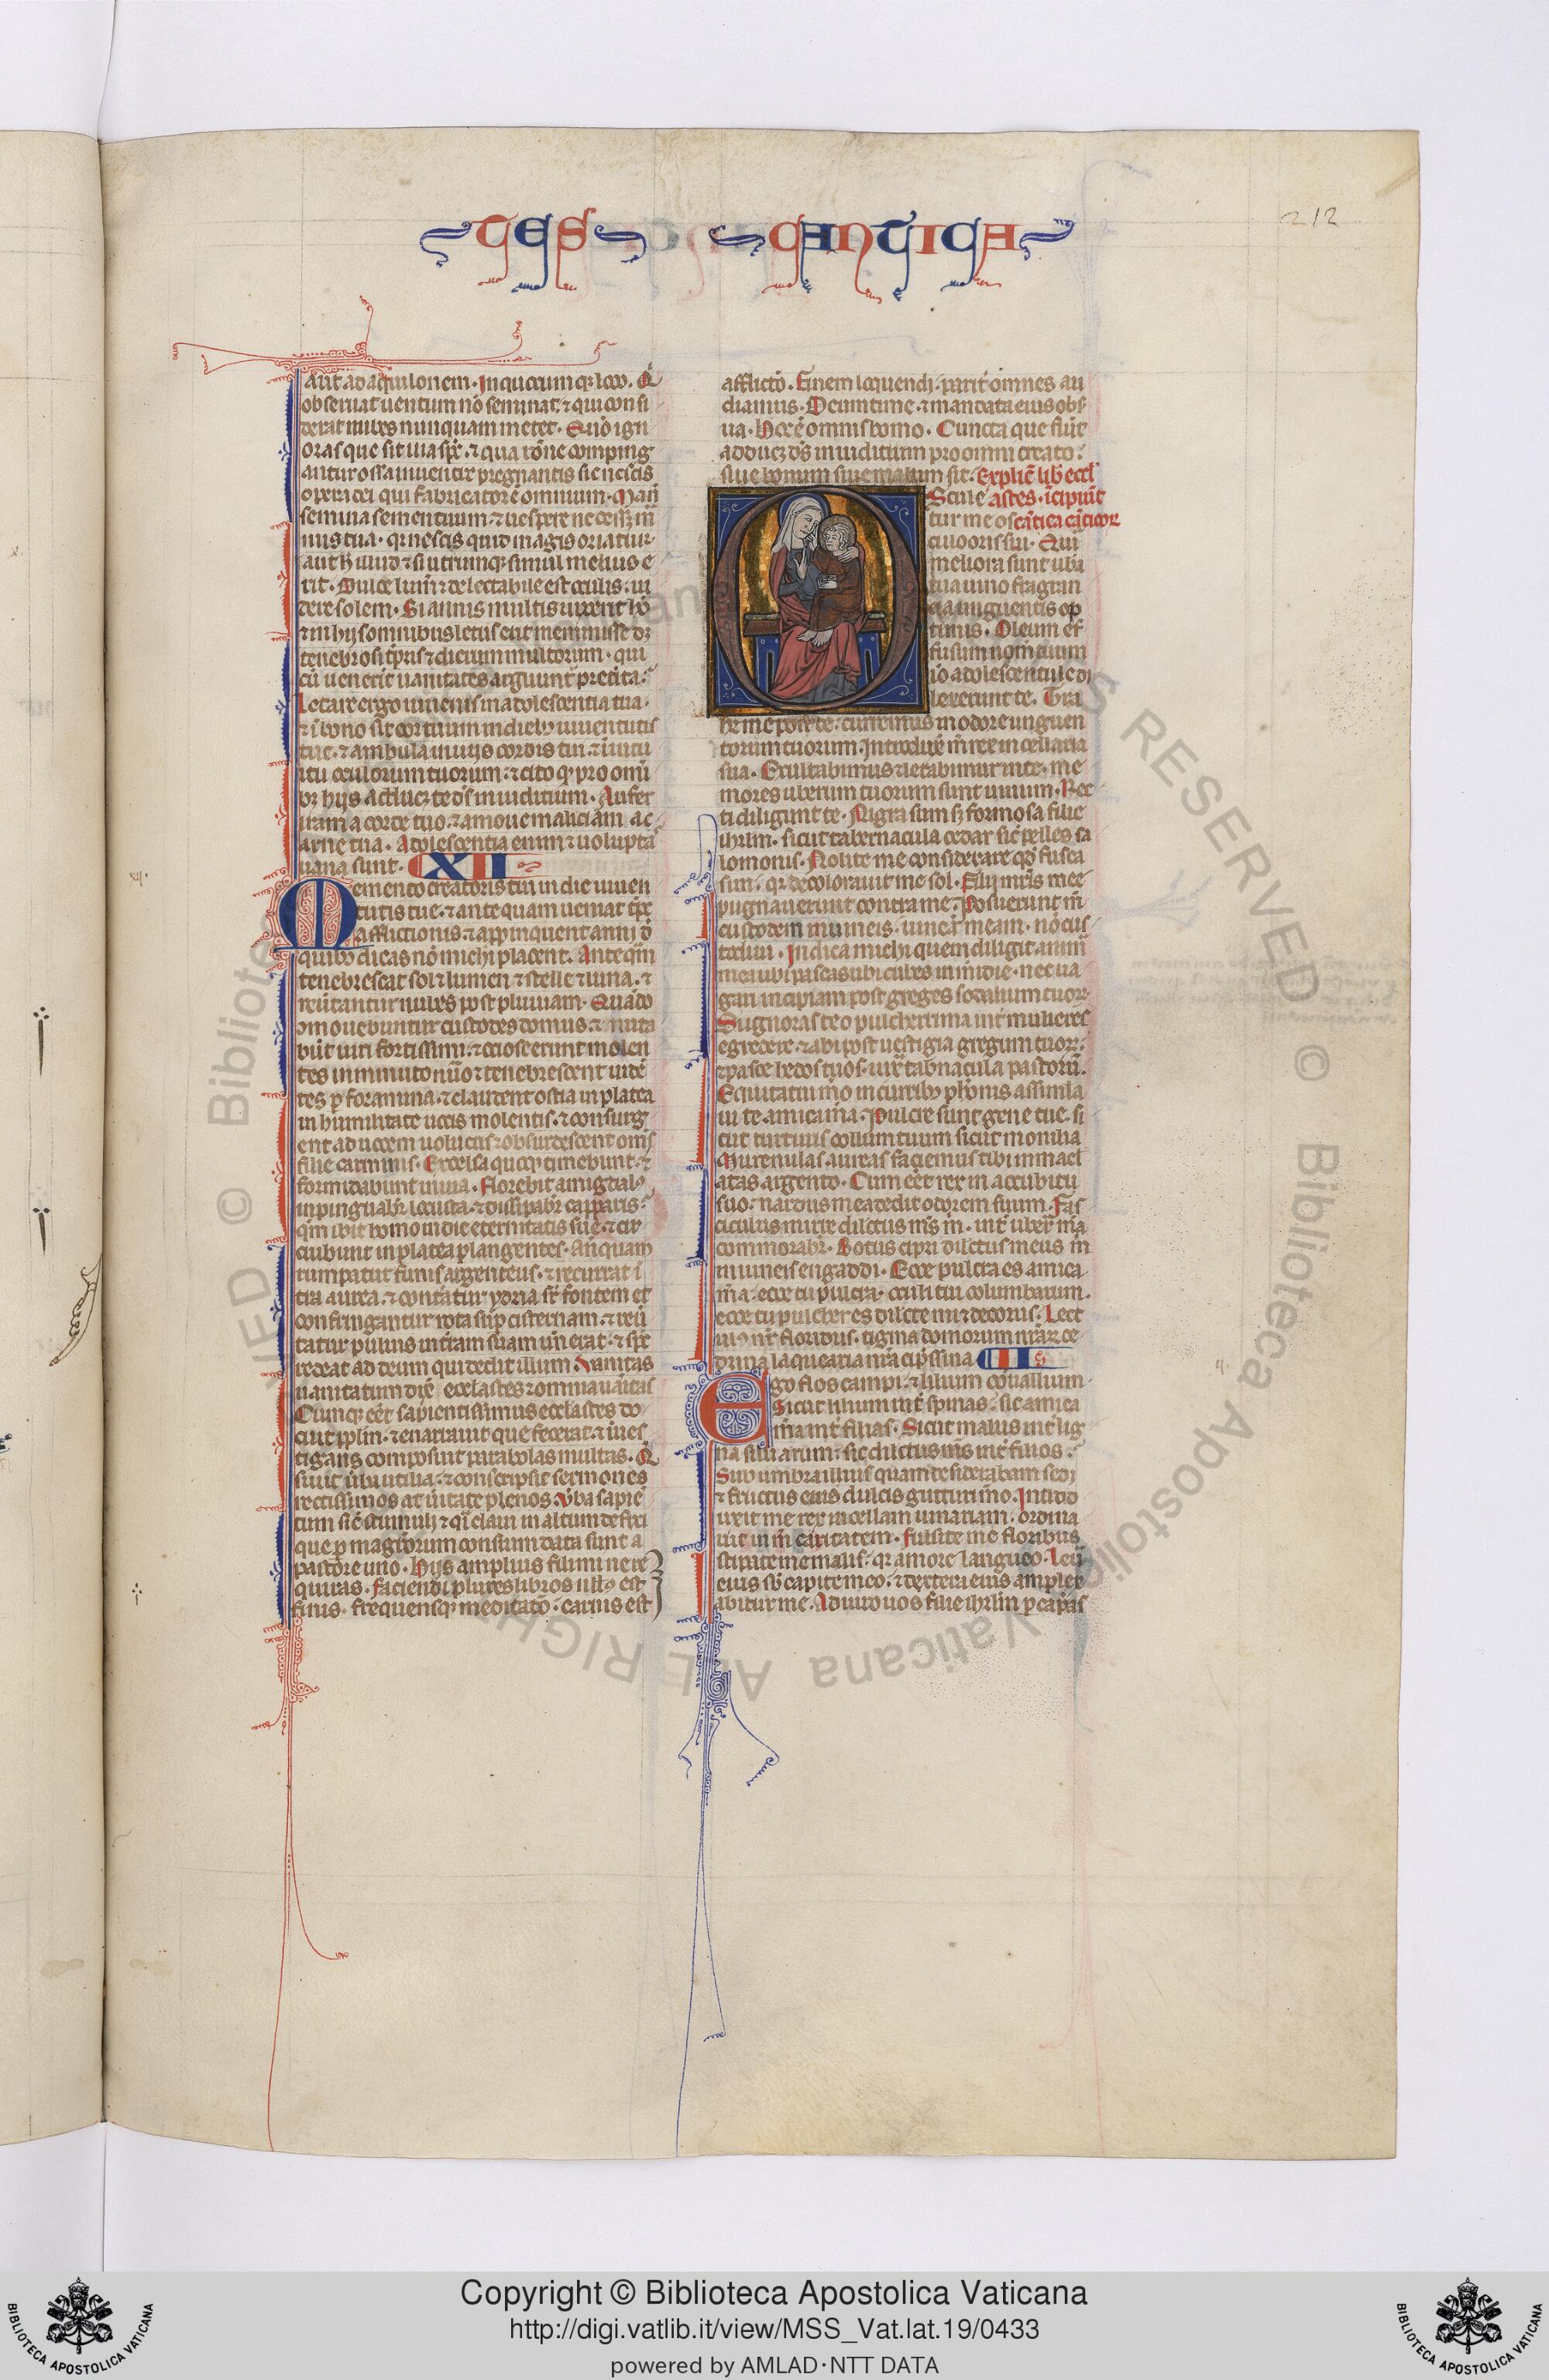 TES CANTICA
212
aut ad aquilonem. In quocumq; loco. Q
obseruat uentum nō seminat. ⁊ qui consi
derat nubes nunquam metet. Quō ign
oras que sit uia sp̄c. ⁊ qua rōne comping
antur ossa in uentre pregnantis sic nescis
opera dei qui fabricator ē omnium. Man̄
semina sementuum. ⁊ uespere ne cesset m̄
nus tua. qr nescis quid magis oriatur
aut h̄ illud ⁊ si utrunq; simul melius e
rit. Dulce lum̄ ⁊ delectabile est oculis. ui
dere solem. Si annis multis uixerit hō
⁊ in hijs omnibus letus erit meminisse dȝ
tenebrosi tp̄ris ⁊ dierum multorum. qui
cū uenerit uanitatis arguunt̄ preterita.
Letare ergo iuuenis in adolescentia tua.
⁊ ī bono sit cor tuum in dieb; iuuentutis
tue. ⁊ ambula in uijs cordis tui. ⁊ ī intu
itu oculorum tuorum. ⁊ scito q; pro omī
bȝ hijs adducȝ te ds̄ in iuditium. Aufer
iram a corde tuo. ⁊ amoue maliciam a c
arne tua. Adolescentia enim ⁊ uolupta
uana sunt. XII
Memento creatoris tui in die iuuen
tutis tue. ⁊ antequam ueniat tp̄c
afflictionis. ⁊ appinquent annij d̄
quib; dicas nō michi placent. Anteq̄m
tenebrescat sol ⁊ lumen ⁊ stelle ⁊ luna. ⁊
reūtantur nubes post pluuiam. Quādo
ōmouebuntur custodes domus. ⁊ nuta
būt uiri fortissimi. ⁊ ociose erunt molen
tes in minuto nūo ⁊ tenebrescent uidē
tes p foramina. ⁊ claudent ostia in platea
in humilitate uocis molentis. ⁊ consurg
ent ad uocem uolucris ⁊ obsurdescent om̄s
filie carminis. Excelsa quoq; timebunt. ⁊
formidabunt in uia. Florebit amigdal;
inpinguabȓ locusta. ⁊ dissipabȓ capparis.
qm̄ ibit homo in die eternitatis sue. ⁊ cir
cuibunt in platea plangentes. Antequam
rumpatur funis argenteus. ⁊ recurrat ī
tra aurea. ⁊ conteratur ydria sr̄ fontem et
confringantur rota sup cisternam. ⁊ reū
tatur puluis in t̄ram suam un̄ erat. ⁊ sp̄c
redeat ad deum qui dedit illum Vanitas
uanitatum dix̄ ecclastes ⁊ omnia uanitas
Cumq; eēt sapientissimus ecclastes do
cuit pp̄lm. ⁊ enarrauit que fecerat. ⁊ īues
tigans composuit parabolas multas. Q
siuit ūba utilia. ⁊ conscripsit sermones
rectissimos ac ūitate plenos. Vba sapiē
tum sic̄ stimuli ⁊ qi clauī in altum defixi
que p magrorum consilium data sunt a
pastore uno. Hijs amplius fili mi ne re
quiras. faciendi plures libros null; est
finis. frequensq; meditatō. carnis est
afflictō. Finem loquendi. parit̄ omnes au
diamus. Deum time. ⁊ mandata eius obs
ua. Hoc ē omnis homo. Cuncta que fiūt
adducȝ ds̄ in iuditium pro omni errato.
siue bonum siue malum sit. Explic̄ lib̄ eccl'
Oscule astes. īcipiūt
tur me oscāntica cāticoȝ
culo oris sui. Qui
meliora sunt ube
tua uino fragran
cia unguentis op
timis. Oleum ef
fusum nom̄ tuum
iō adolescentule di
lexerunt te. Tra
he me post te. curremus in odore unguen
torum tuorum. Introduxit m̄ rex in cellaria
sua. Exultabimus ⁊ letabimur in te. me
mores uberum tuorum sunt uinum. Rec
ti diligunt te. Nigra sum sȝ formosa filie
ihrlm. sicut tabernacula cedar sic̄ pelles sa
lomonis. Nolite me considerare qd̄ fusca
sim. qr decolorauit me sol. Filij mrīs mee
pugnauerunt contra me. Posuerunt m̄
custodem in uineis. uineā meam. nō cus
todiui. Indica michi quem diligit anim̄
mea ubi pascas ubi cubes in midie. ne ua
gari incipiam post greges sodalium tuoȝ
Si ignoras te o pulcherrima int̄ mulieres
egredere. ⁊ abi post uestigia gregum tuoȝ.
⁊ pasce hedos tuos. iux̄ tabnacula pastorū.
Equitatui mō in currib; phōnis assimila
ui te amica mā. Pulcre sunt gene tue. si
cut turturis collum tuum sicut monilia
Murenulas aureas faciemus tibi uermicl
atas argento. Cum eēt rex in accubitu
suo. nardus mea dedit odorem suum. Fas
ciculus mirre dilctus ms̄ m̄. int̄ ubera m̄a
commorabȓ. Botus cipri dilctus meus m̄
in uineis engaddi. Ecce pulcra es amica
m̄a. ecce tu pulcra. oculi tui columbarum.
ecce tu pulcher es dilcte mi ⁊ decorus. Lect
ul; nr̄ floridus. tigna domorum nrāȝ ce
drina laquearia nrā cip̄ssina II
Ego flos campi. ⁊ lilium cōuallium.
Sicut lilium int̄ spinas. sic amica
m̄a int̄ filias. Sicut malus int̄ lig
na siluarum. sic dilctus ms̄ int̄ filios.
Sub umbra illius quam desiderabam sedi
⁊ fructus eius dulcis gutturi mō. Introd
uxit me rex in cellam uinariam. ordina
uit in m̄ caritatem. Fulcite me floribus
stipate me malis. qr amore langueo. Leū
eius sb̄ capite meo. ⁊ dextera eius amplex
abitur me. Adiuro uos filie ihrlm p capas
Copyright © Biblioteca Apostolica Vaticana
http://digi.vatlib.it/view/MSS_Vat.lat.19/0433
powered by AMLAD·NTT DATA
BIBLIOTECA APOSTOLICA VATICANA
BIBLIOTECA APOSTOLICA VATICANA